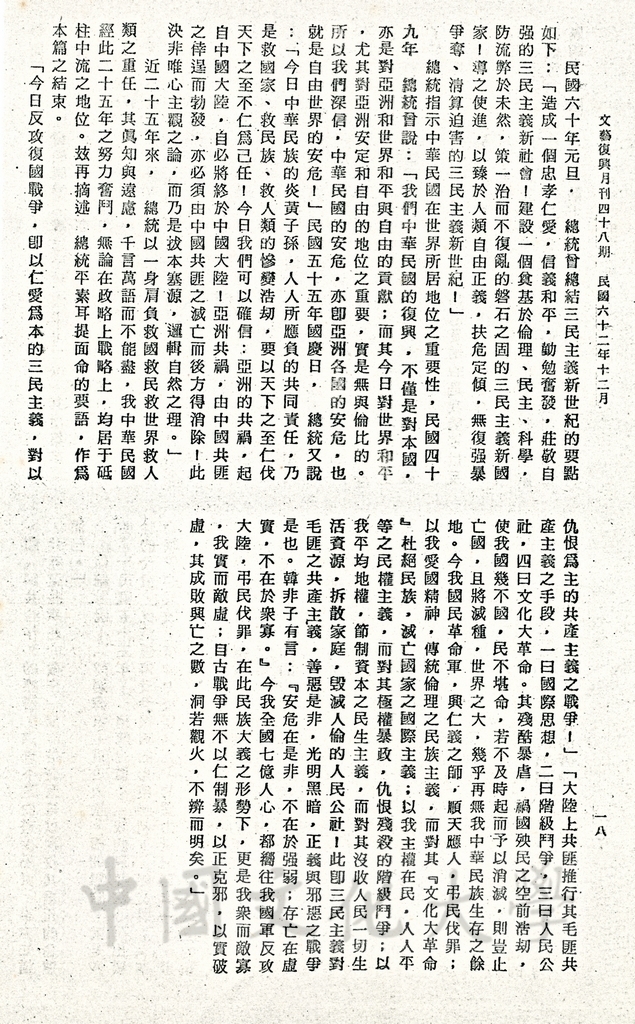 文藝復興月刊四十八期　民國六十二年十二月
一八
民國六十年元旦，　總統曾總結三民主義新世紀的要點
如下：「造成一個忠孝仁愛，信義和平，勤勉奮發，莊敬自
强的三民主義新社會！建設一個奠基於倫理、民主、科學，
防流弊於未然，策一治而不復亂的磐石之固的三民主義新國
家！導之使進，以臻於人類自由正義，扶危定傾，無復强暴
爭奪、清算迫害的三民主義新世紀！」
總統指示中華民國在世界所居地位之重要性，民國四十
九年　總統曾說：「我們中華民國的復興，不僅是對本國，
亦是對亞洲和世界和平與自由的貢獻；而其今日對世界和平
，尤其對亞洲安定和自由的地位之重要，實是無與倫比的。
所以我們深信，中華民國的安危，亦卽亞洲各國的安危，也
就是自由世界的安危！」民國五十五年國慶日，　總統又說
：「今日中華民族的炎黃子孫，人人所應負的共同責任，乃
是救國家、救民族、救人類的慘變浩刼，要以天下之至仁伐
天下之至不仁爲己任！今日我們可以確信：亞洲的共禍，起
自中國大陸，自必將終於中國大陸！亞洲共禍，由中國共匪
之倖逞而勃發，亦必須由中國共匪之滅亡而後方得消除！此
決非唯心主觀之論，而乃是拔本塞源，邏輯自然之理。」
近二十五年來，　總統以一身肩負救國救民救世界救人
類之重任，其眞知與遠慮，千言萬語而不能盡，我中華民國
經此二十五年之努力奮鬥，無論在政略上戰略上，均居于砥
柱中流之地位。玆再摘述　總統平素耳提面命的要語，作爲
本篇之結束。
「今日反攻復國戰爭，卽以仁愛爲本的三民主義，對以
仇恨爲主的共產主義之戰爭！」「大陸上共匪推行其毛匪共
產主義之手段，一曰國際思想，二曰階級鬥爭，三曰人民公
社，四曰文化大革命。其殘酷暴虐，禍國殃民之空前浩刼，
使我國幾不國，民不堪命，若不及時起而予以消滅，則豈止
亡國，且將滅種，世界之大，幾乎再無我中華民族生存之餘
地。今我國民革命軍，興仁義之師，順天應人，弔民伐罪；
以我愛國精神，傳統倫理之民族主義，而對其『文化大革命
』杜絕民族，滅亡國家之國際主義；以我主權在民，人人平
等之民權主義，而對其極權暴政，仇恨殘殺的階級鬥爭；以
我平均地權，節制資本之民生主義，而對其沒收人民一切生
活資源，拆散家庭，毀滅人倫的人民公社！此卽三民主義對
毛匪之共產主義，善惡是非，光明黑暗，正義與邪惡之戰爭
是也。韓非子有言：『安危在是非，不在於强弱；存亡在虛
實，不在於衆寡。』今我全國七億人心，都嚮往我國軍反攻
大陸，弔民伐罪，在此民族大義之形勢下，更是我衆而敵寡
，我實而敵虛；自古戰爭無不以仁制暴，以正克邪，以實破
虛，其成敗興亡之數，洞若觀火，不辨而明矣。」
中國文化大學